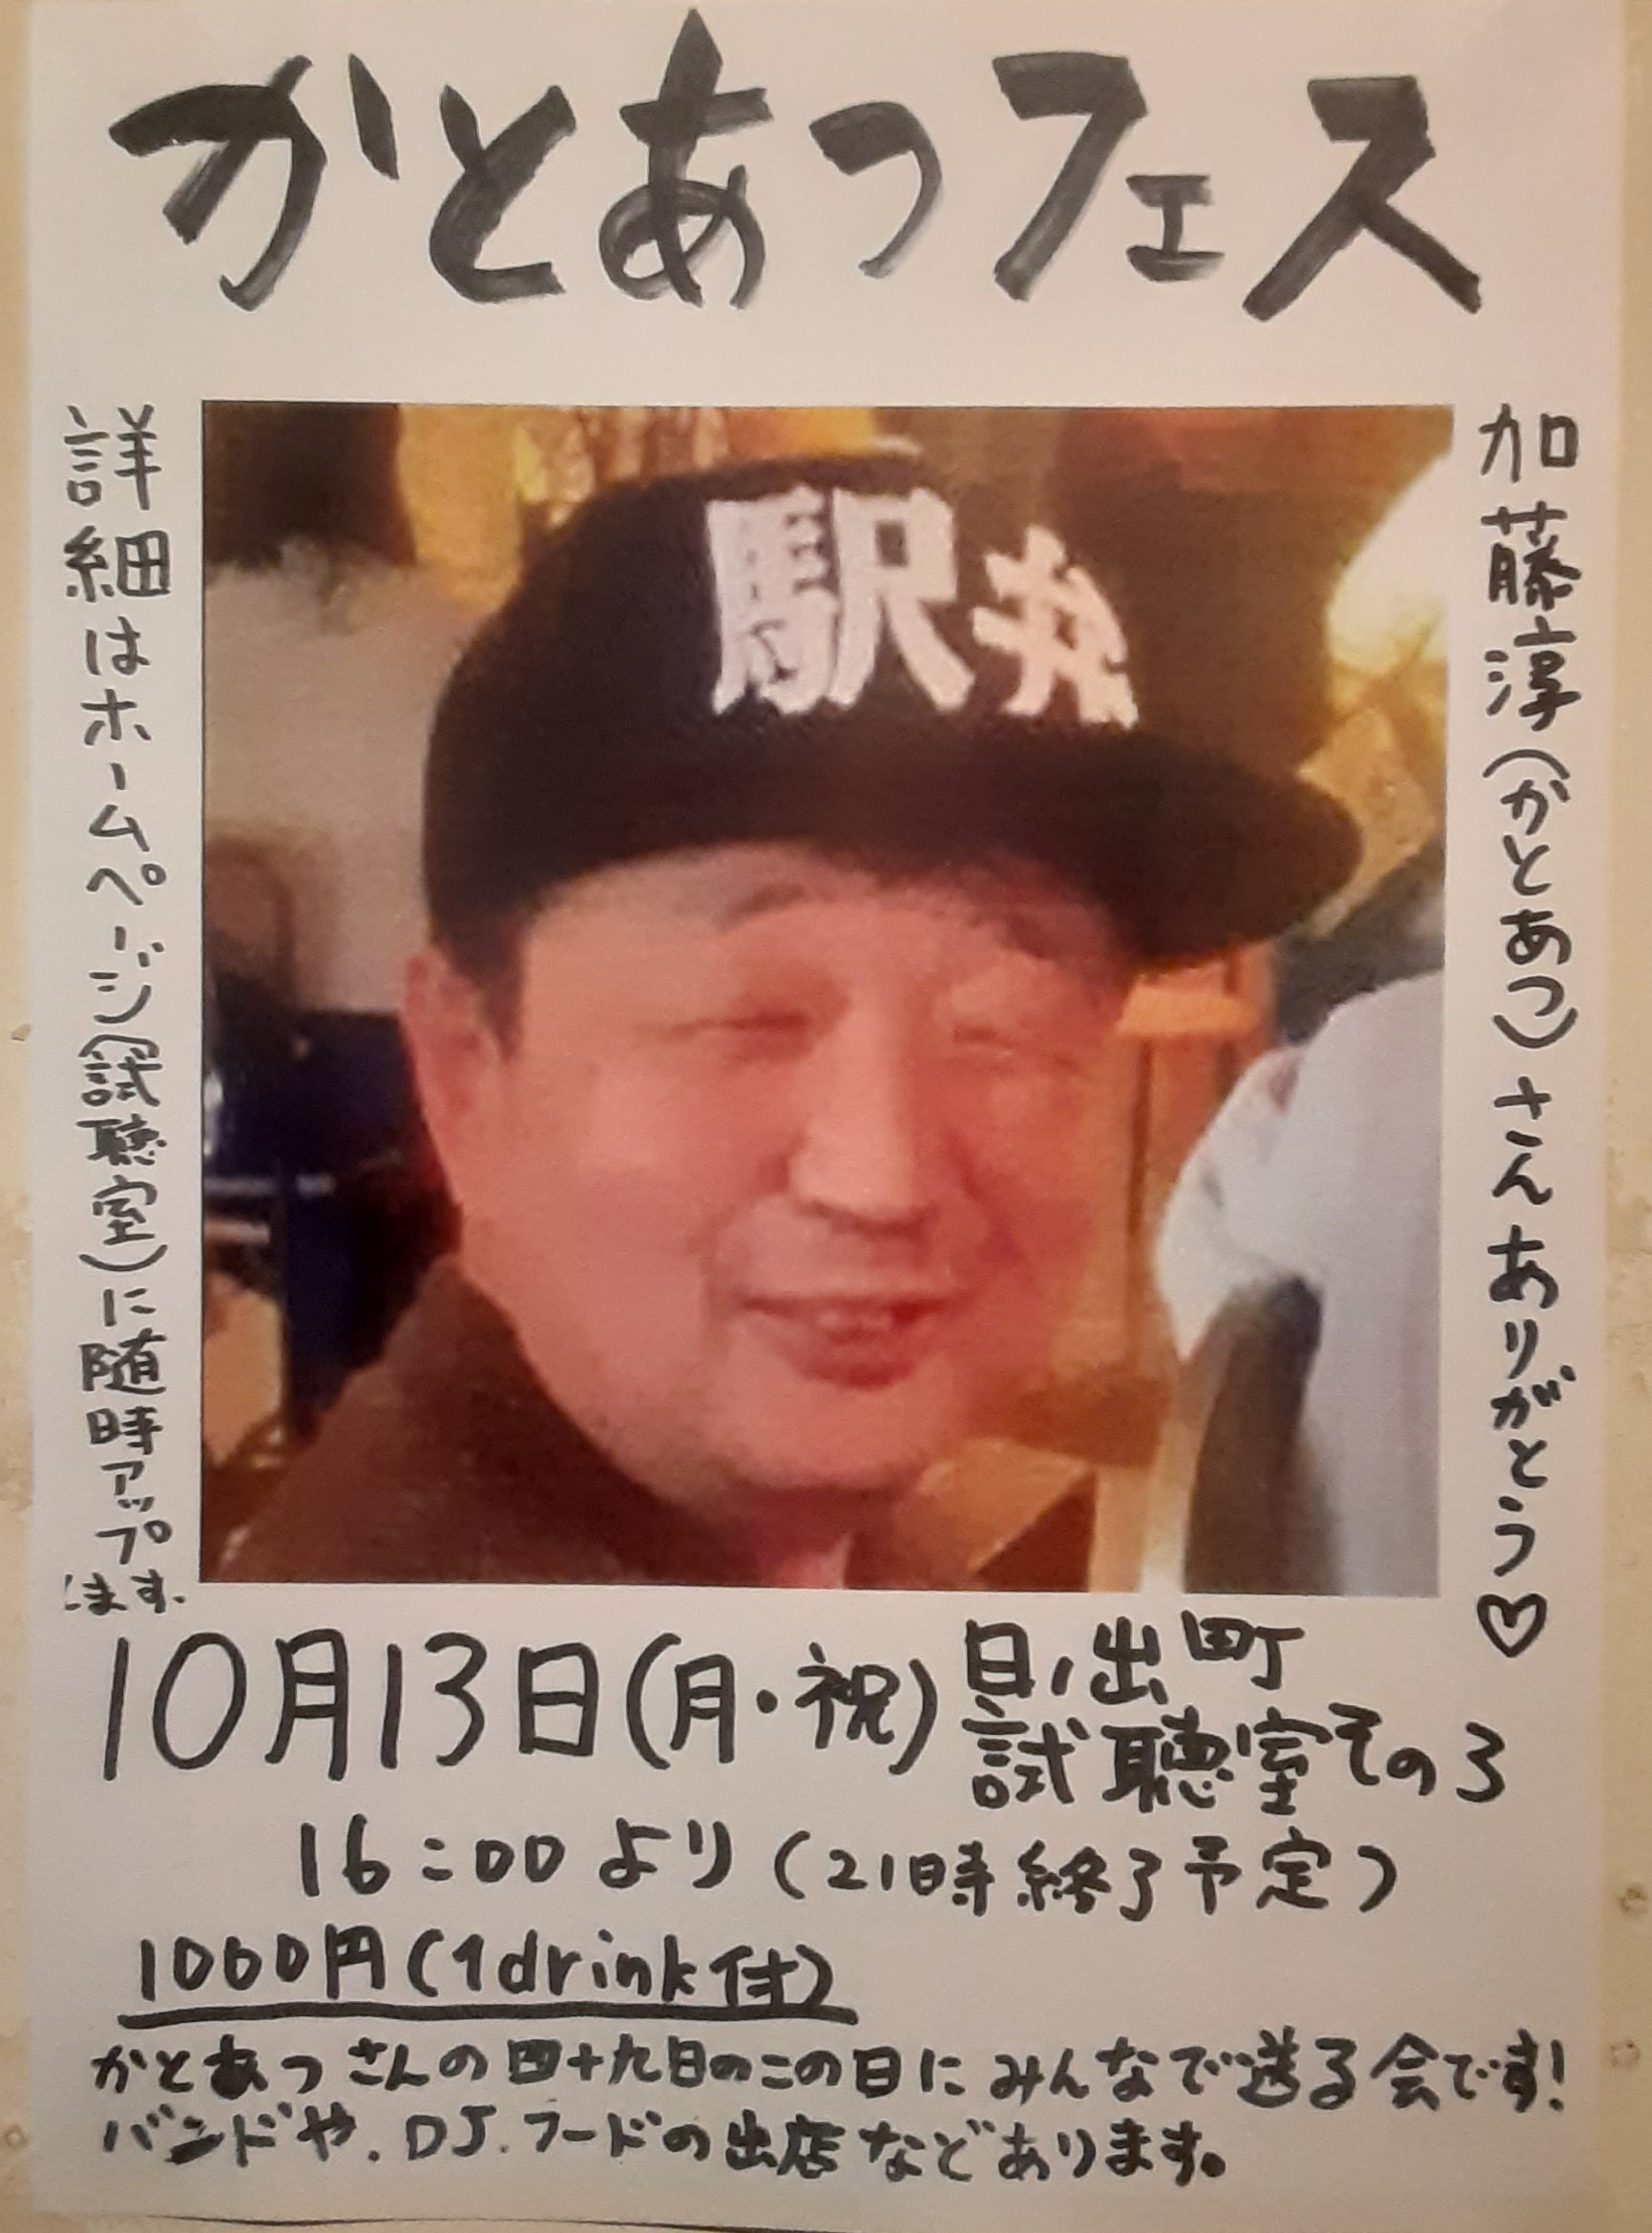 かとあつフェス
加藤淳(かとあつ)さんありがとう♡
駅弁
詳細はホームページ(試聴室)に随時アップします.
10月13日(月・祝)
日ノ出町
試聴室その3
16:00より(21時終了予定)
1000円(1drink付)
かとあつさんの四十九日のこの日にみんなで送る会です!
バンドや.DJ.フードの出店などあります。